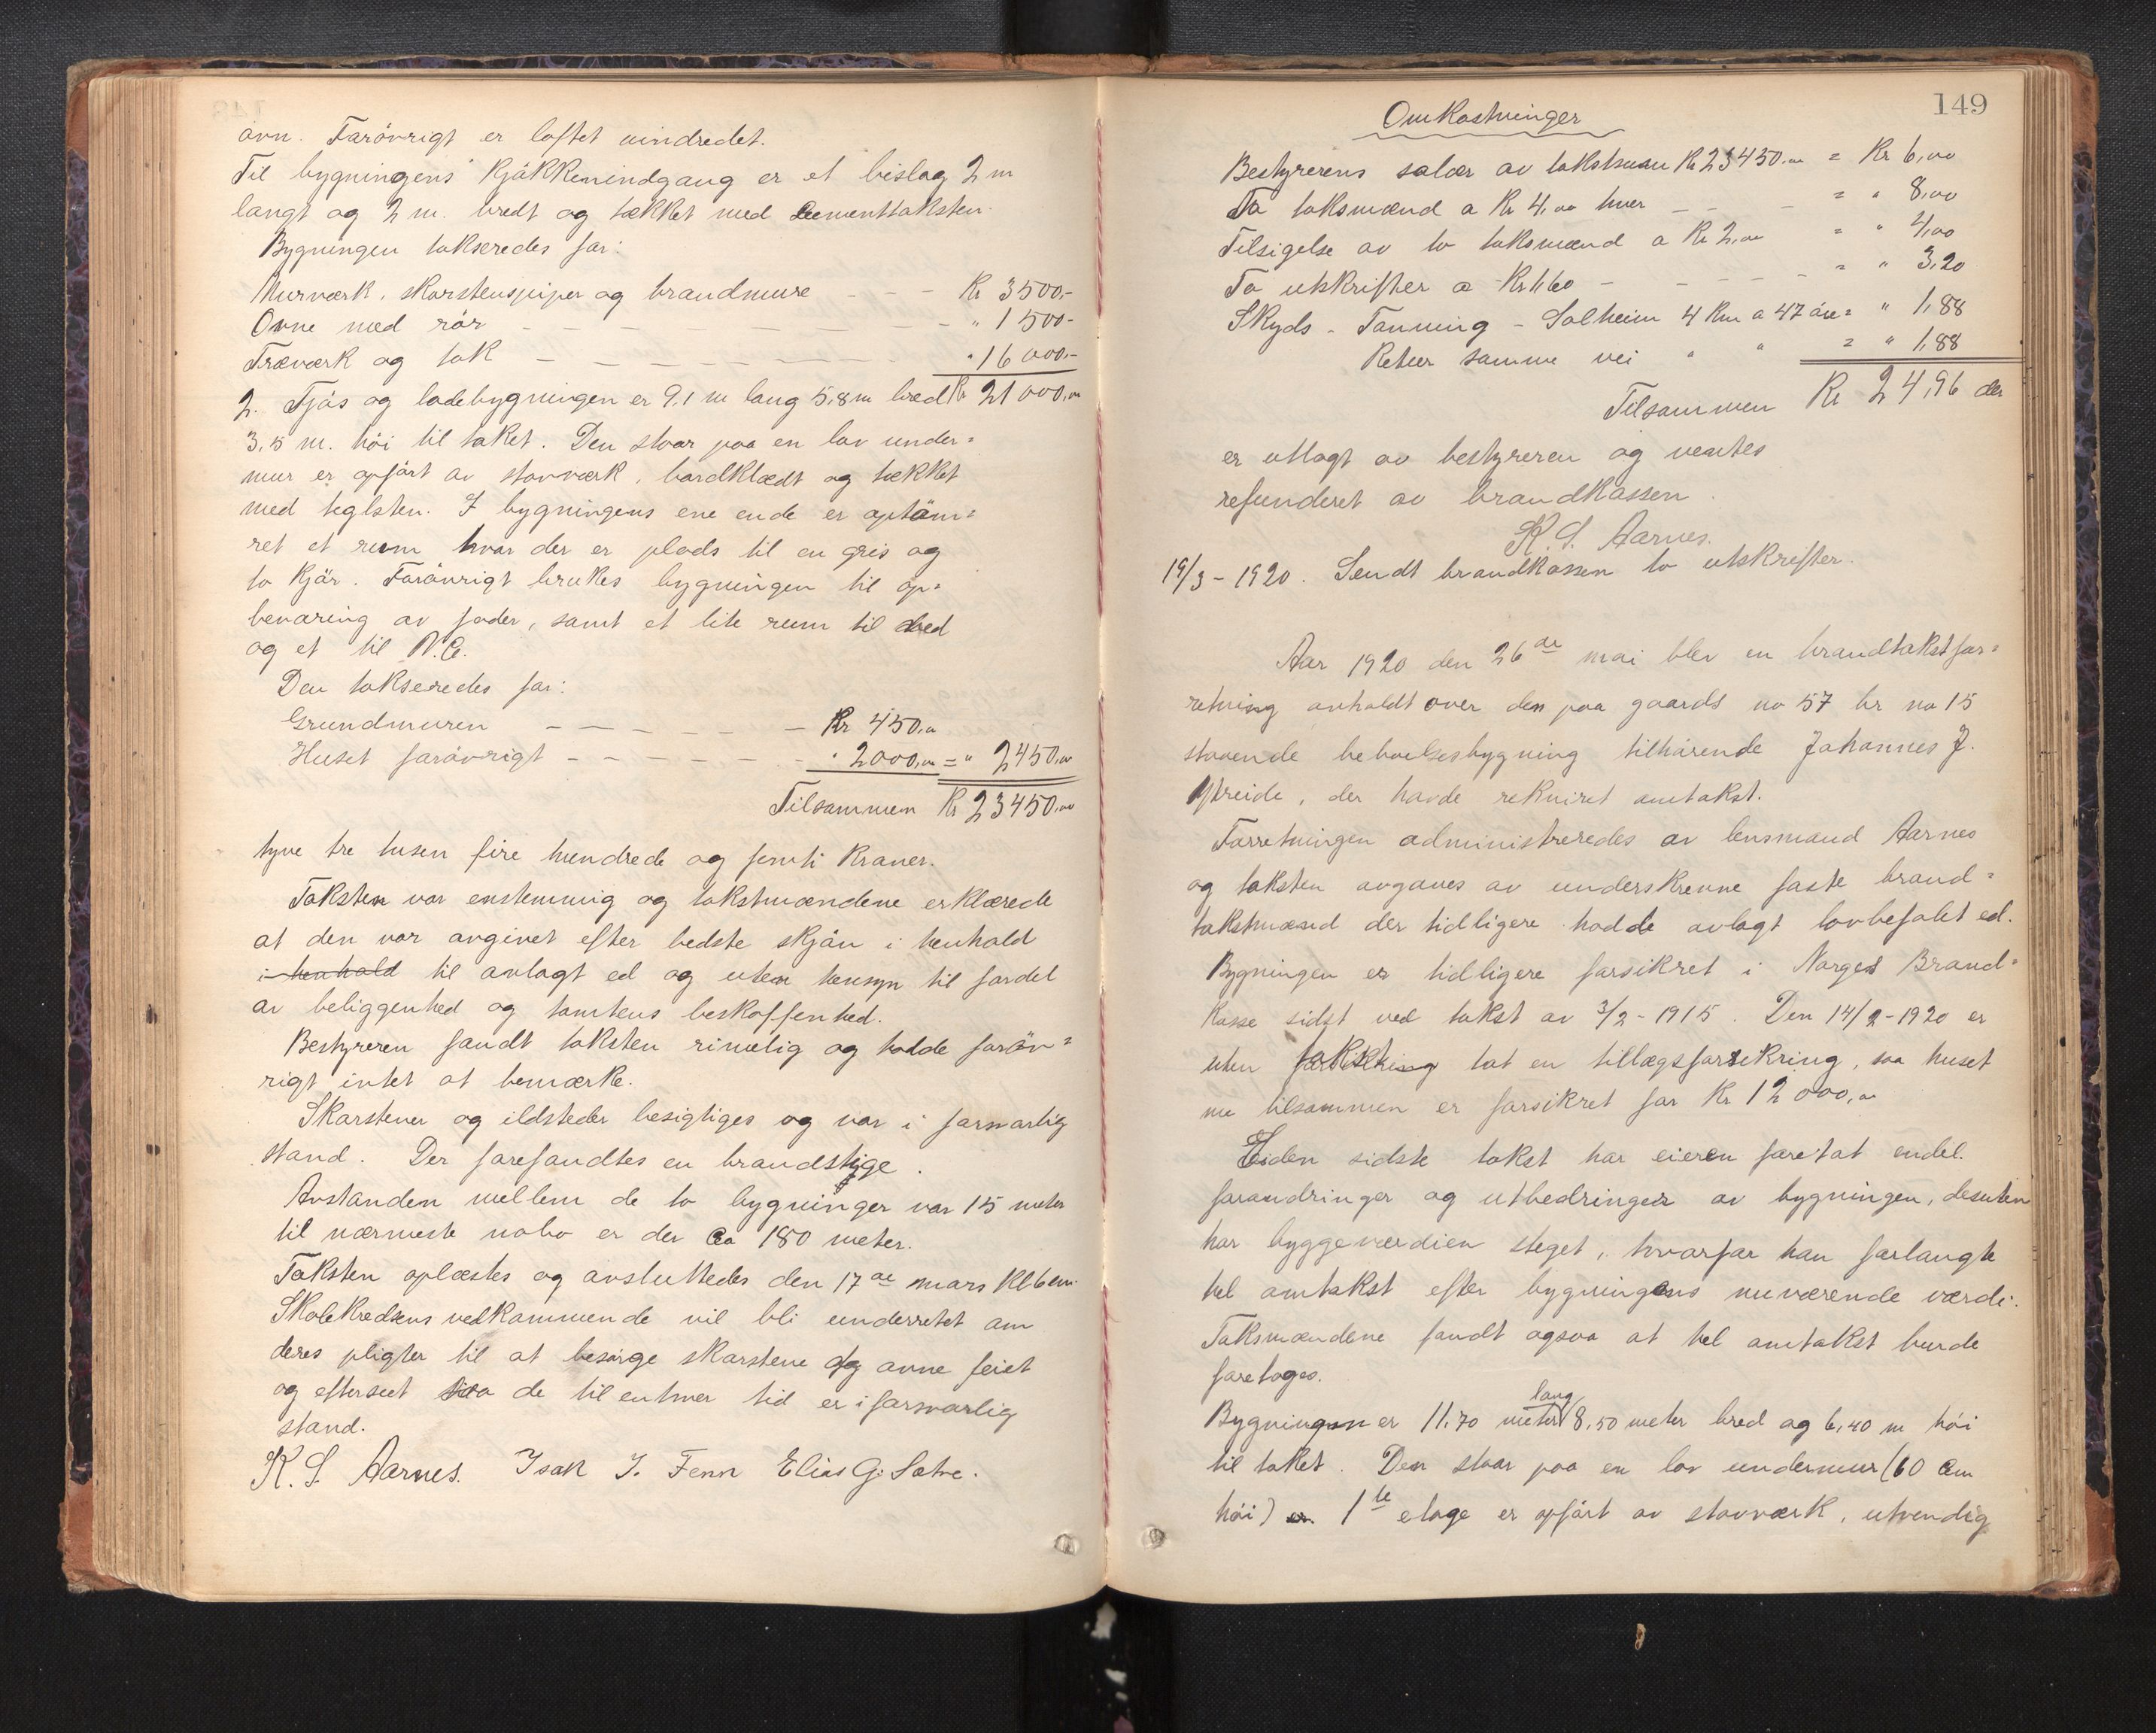 ovn. Forövrigt er loftet uindredet.
Til bygningens Kjökkenindgang er et bislag 2 m
langt og 2 m. bredt og tækket med Cementtaksten.
Bygningen takseredes for:
Murværk, skorstenspiper og brandmure - - - Kr 3500,-
Ovne med rör - - - - - " 1500-
Træværk og tak - - - - - " 16000.-
2. Fjös og ladebygningen er 9,1 m lang 5,8 m bred Kr 21000,00
3,5 m. höi til taket. Den staar paa en lav under=
mur er opfört av stavværk, bordklædt og tækket
med teglsten. I bygningens ene ende er optöm=
ret et rum hvor der er plads til en gris og
to Kjör. Forövrigt brukes bygningen til op=
bevaring av foder, samt et lite rum til ved
og et til W.C.
Den takseredes for:
Grundmuren - - - - - Kr 450,00
Huset forövrigt - - - - - " 2000,00 = " 2450,00
Tilsammen Kr 23450,00
tyve tre tusen fire hundrede og femti Kroner.
Taksten var enstemmig og takstmændene erklærede
at den var avgivet efter bedste skjön i henhold
i henhold til avlagt ed og uten hensyn til fordel
av beliggenhed og tomtens beskaffenhed.
Bestyreren fandt taksten rimelig og hadde foröv=
rigt intet at bemærke.
Skorstener og ildsteder besigtiges og var i forsvarlig
stand. Der forefandtes en brandstige.
Avstanden mellem de to bygninger var 15 meter
til nærmeste nabo er der Ca 180 meter.
Taksten oplæstes og avsluttedes den 17de mars Kl 6 em.
Skolekredsens vedkommende vil bli underrettet om
deres pligter til at besörge skorstene og ovne feiet
og efterseet saa de til enhver tid er i forsvarlig
stand.
K. S. Aarnes. Isak I. Fenn Elias G. Sætre.
149
Omkostninger
Bestyrerens salær av takstsum Kr 23450.00 = Kr 6,00
To taksmænd a Kr 4,00 hver - - - = " 8,00
Tilsigelse av to taksmænd a Kr 2,00 = " 4,00
To utskrifter a Kr 1,60 - - - - = " 3,20
Skyds - Tonning - Solheim 4 Km a 47 öre = " 1,88
Retur samme vei " " = " 1,88
Tilsammen Kr 24,96 der
er utlagt av bestyreren og ventes
refunderet av brandkassen.
K. S. Aarnes.
19/3 - 1920. Sendt brandkassen to utskrifter.
Aar 1920 den 26de mai blev en brandtakstfor=
retning avholdt over den paa gaards no 57 br no 15
staaende beboelsesbygning tilhörende Johannes J.
Ytreide, der havde rekviret omtakst.
Forretningen administreredes av lensmand Aarnes
og taksten avgaves av underskrevne faste brand=
takstmænd der tidligere hadde avlagt lovbefalet ed.
Bygningen er tidligere forsikret i Norges Brand=
Kasse sidst ved takst av 3/2 - 1915. Den 14/2 - 1920 er
uten tat en tillægsforsikring, saa huset
nu tilsammen er forsikret for Kr 12000,00
Siden sidste takst har eieren foretat endel
forandringer og utbedringer av bygningen, desuten
har byggeværdien steget, hvorfor han forlangte
hel omtakst efter bygningens nuværende værdi.
Taksmændene fandt ogsaa at hel omtakst burde
foretages.
Bygningen er 11,70 meter lang 8,50 meter bred og 6,40 m höi
til taket. Den staar paa en lav undermur (60 Cm
höi) er. 1ste etage er opfört av stavværk, utvendig